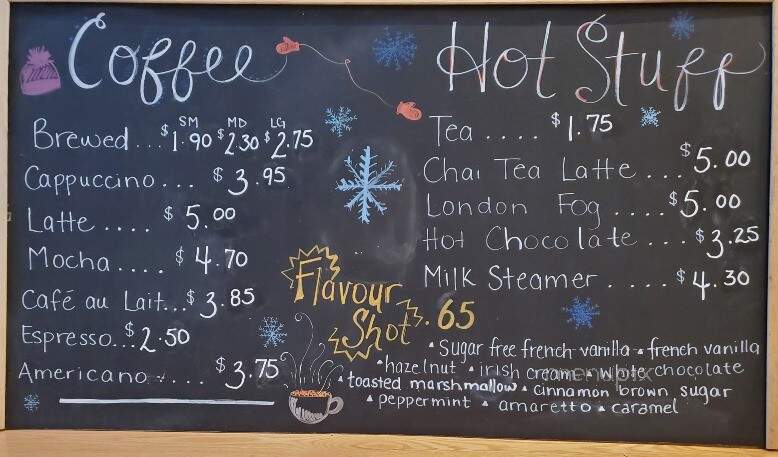 Coffee
SM MD LG
Brewed... $1.90 $2.30 $2.75
Cappuccino... $3.95
Latte.... $5.00
Mocha.... $4.70
Café au Lait...$3.85
Espresso...$2.50
Americano..... $3.75
Hot Stuff
Tea.... $1.75
Chai Tea Latte... $5.00
London Fog.... $5.00
Hot Chocolate... $3.25
Milk Steamer..... $4.30
Flavour
Shot .65
Sugar free french vanilla french vanilla
hazelnut irish creame white chocolate
toasted marshmallow cinnamon brown sugar
peppermint amaretto caramel